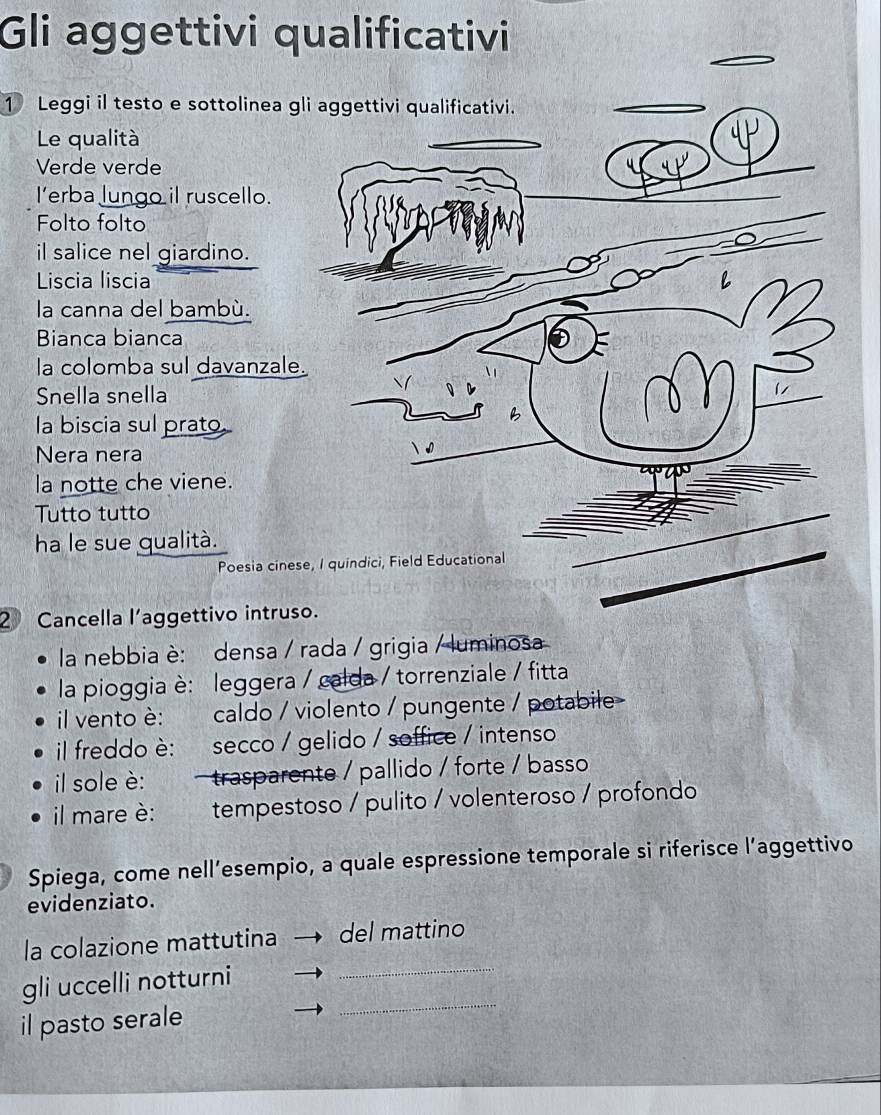 Gli aggettivi qualificativi
1 Leggi il testo e sottolinea gli aggettivi qualificativi.
Le qualità
Verde verde
l'erba lungo il ruscello.
Folto folto
il salice nel giardino.
Liscia liscia
la canna del bambù.
Bianca bianca
la colomba sul davanzale.
Snella snella
la biscia sul prato.
Nera nera
la notte che viene.
Tutto tutto
ha le sue qualità.
Poesia cinese, I quindici, Field Educational
2 Cancella l'aggettivo intruso.
• la nebbia è: densa / rada / grigia / luminosa
• la pioggia è: leggera / calda / torrenziale / fitta
• il vento è: caldo / violento / pungente / potabile
• il freddo è: secco / gelido / soffice / intenso
• il sole è: trasparente / pallido / forte / basso
• il mare è: tempestoso / pulito / volenteroso / profondo
Spiega, come nell'esempio, a quale espressione temporale si riferisce l'aggettivo
evidenziato.
la colazione mattutina → del mattino
gli uccelli notturni →
il pasto serale →